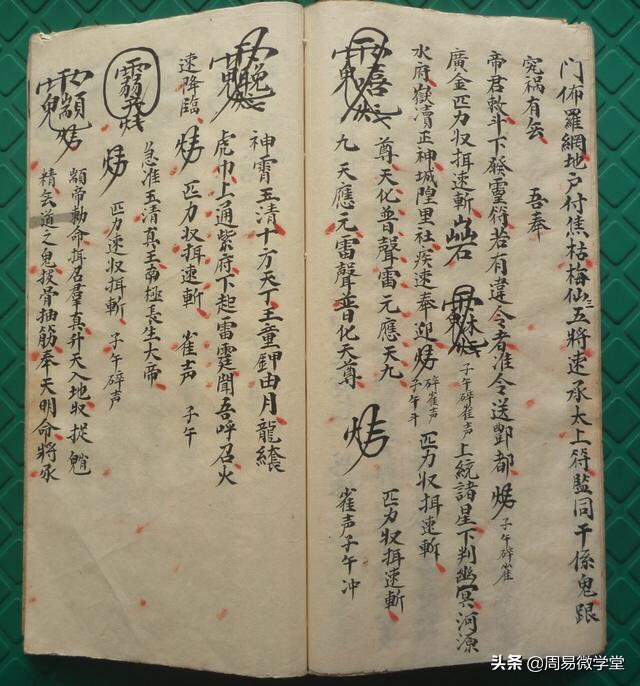 門佈羅網地戶付焦枯梅仙三五將速承太上符監同干係鬼跟
究祸有玄 吾奉
帝君敕斗下發靈符若有違令者准令送酆都 子午碎雀
廣金匹力収揖速斬 子午碎雀声 上統諸星下判幽冥河源
水府嶽瀆正神城隍里社疾速奉迎 碎雀声 子午斗 匹力収揖速斬
尊天化普聲雷元應天九 匹力収揖速斬
九天應元雷聲普化天尊 雀声子午冲
神霄玉清十方天丁王童鉀由月龍
虎巾上通紫府下起雷霆聞吾呼召火
速降臨 匹力収揖速斬 雀声 子午
急准玉清真王南極長生大帝
匹力速収揖斬 子午碎声
顓帝勅命揖召羣真升天入地収捉
精玄道之鬼拔骨抽筋奉天明命將承
头条 @周易微学堂